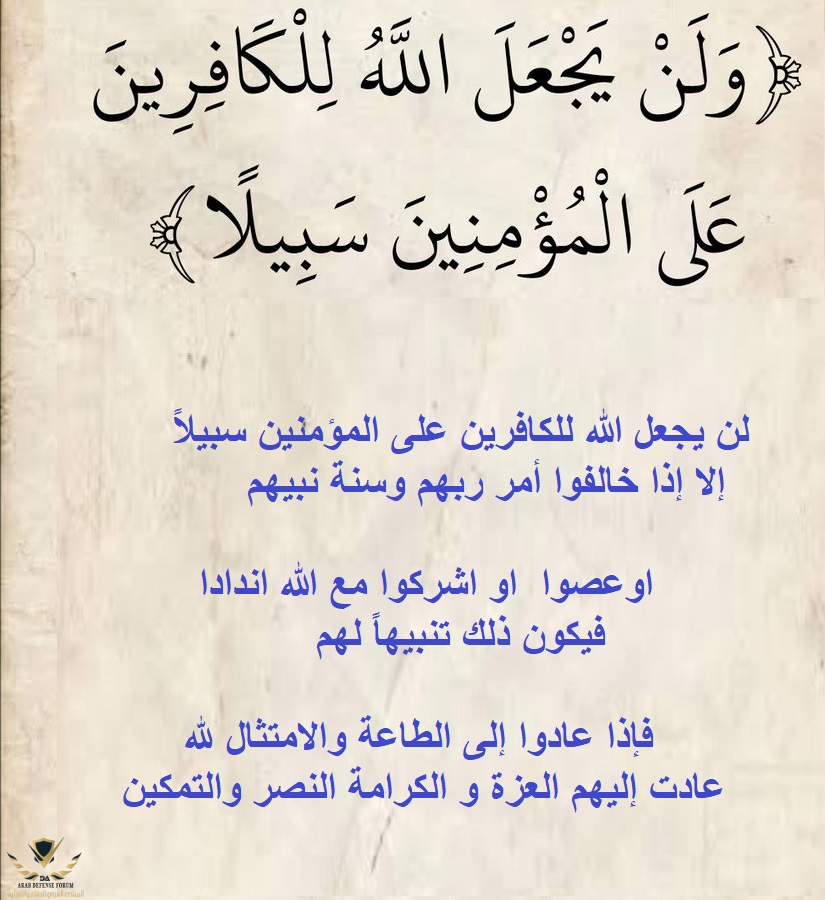 ﴿وَلَنْ يَجْعَلَ اللَّهُ لِلْكَافِرِينَ
عَلَى الْمُؤْمِنِينَ سَبِيلًا﴾
لن يجعل الله للكافرين على المؤمنين سبيلاً
إلا إذا خالفوا أمر ربهم وسنة نبيهم
اوعصوا او اشركوا مع الله اندادا
فيكون ذلك تنبيهاً لهم
فإذا عادوا إلى الطاعة والامتثال لله
عادت إليهم العزة و الكرامة النصر والتمكين
DA
ARAB DEFENSE FORUM